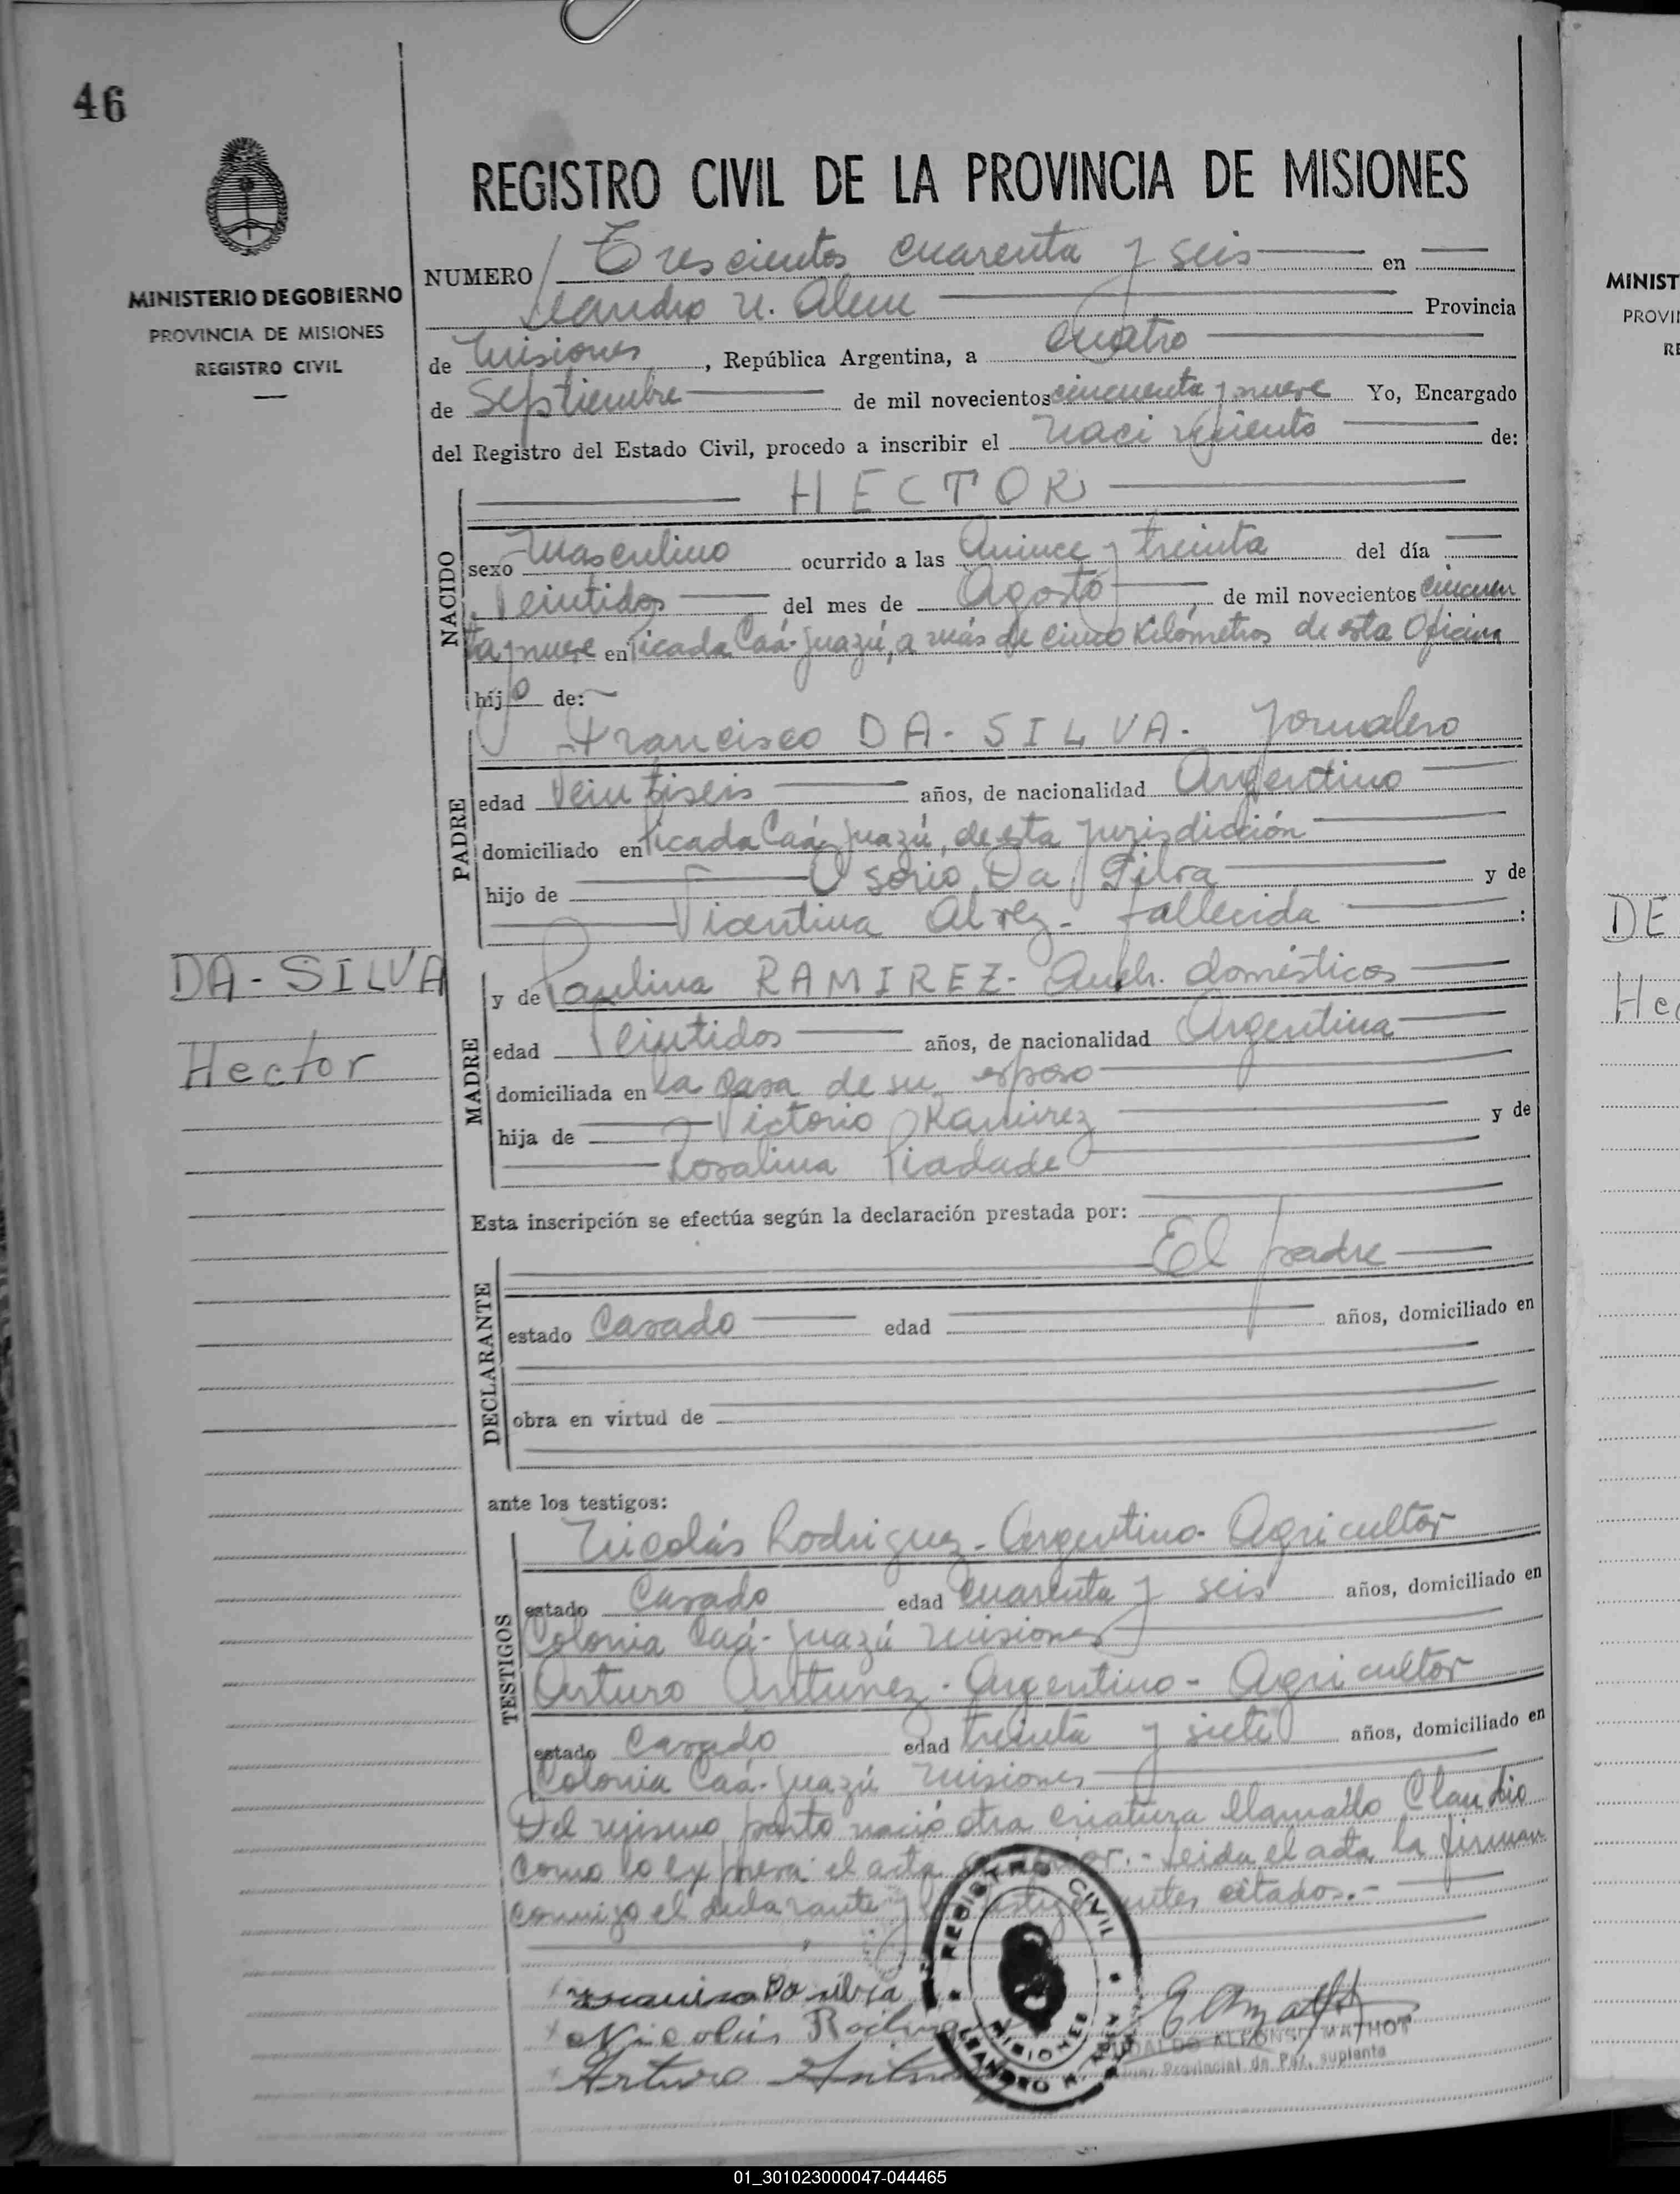 46
MINISTERIO DE GOBIERNO
PROVINCIA DE MISIONES
REGISTRO CIVIL
REGISTRO CIVIL DE LA PROVINCIA DE MISIONES
NUMERO Trescientos cuarenta y seis en
Leandro N. Alem Provincia
de Misiones, República Argentina, a cuatro
de Septiembre de mil novecientos cincuenta y nueve Yo, Encargado
del Registro del Estado Civil, procedo a inscribir el Nacimiento de:
HECTOR
NACIDO
sexo Masculino ocurrido a las Quince y treinta del día
Veintidos del mes de Agosto, de mil novecientos cincuen
ta y nueve en Picada Caá-Guazú, a más de cinco Kilómetros de esta Oficina
hijo de:
PADRE
Francisco DA-SILVA. Jornalero
edad Veintiseis años, de nacionalidad Argentino
domiciliado en Picada Caá Guazú, de esta jurisdicción
hijo de Osorio Da Silva y de
Vicentina Alvez - fallecida :
DA-SILVA
Hector
MADRE
y de Paulina RAMIREZ- Queh. domésticos
edad Veintidos años, de nacionalidad Argentina
domiciliada en la casa de su esposo
hija de Victorio Ramirez y de
Rosalina Piadade
Esta inscripción se efectúa según la declaración prestada por:
DECLARANTE
El padre
estado Casado edad años, domiciliado en
obra en virtud de
ante los testigos:
TESTIGOS
Nicolás Rodriguez - Argentino - Agricultor
estado Casado edad cuarenta y seis años, domiciliado en
Colonia Caá-Guazú Misiones
Arturo Antunez - Argentino - Agricultor
estado Casado edad treinta y siete años, domiciliado en
Colonia Caá-Guazú Misiones
Del mismo parto nació otra criatura llamado Claudio
como lo expresa el acta anterior.- Leida el acta la firman
conmigo el declarante y testigos antes citados.-
Francisco Da silva
Nicolás Rodrig
Arturo Antun
REGISTRO CIVIL
MISIONES
LEANDRO N. ALEM
ALFONSO MATHOT
Juez Provincial de Paz, suplente
MINIST
PROVI
RE
DE
Hec
01_301023000047-044465